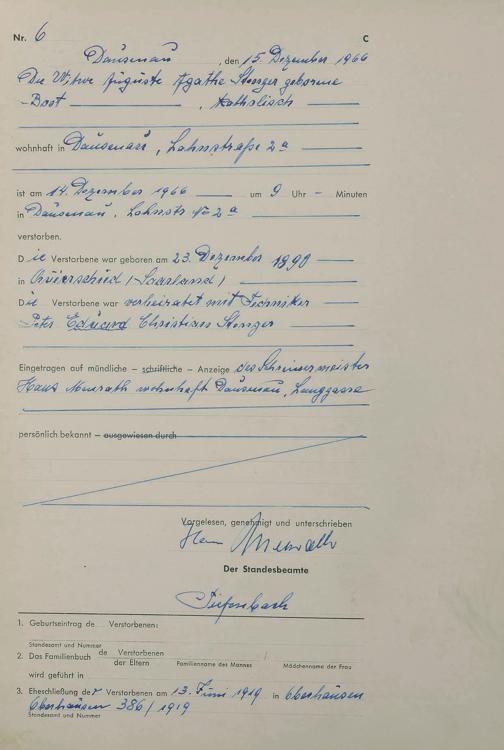 Nr. 6 C
Dausenau, den 15. Dezember 1966
Die Witwe Auguste Agathe Stenger geborene
-Bost, katholisch
wohnhaft in Dausenau, Lahnstraße 2a
ist am 14. Dezember 1966 um 9 Uhr - Minuten
in Dausenau, Lahnstr. No 2a
verstorben.
Die Verstorbene war geboren am 23. Dezember 1890
in Quierschied (Saarland)
Die Verstorbene war verheiratet mit Techniker
Peter Eduard Christian Stenger
Eingetragen auf mündliche – schriftliche – Anzeige des Schreinermeister
Hans wohnhaft Dausenau, Langgasse
persönlich bekannt – ausgewiesen durch
Vorgelesen, genehmigt und unterschrieben
Der Standesbeamte
1. Geburtseintrag de Verstorbenen:
Standesamt und Nummer
2. Das Familienbuch de Verstorbenen
der Eltern Familienname des Mannes / Mädchenname der Frau
wird geführt in
3. Eheschließung der Verstorbenen am 13. Juni 1919 in Oberhausen
Oberhausen 386/1919
Standesamt und Nummer